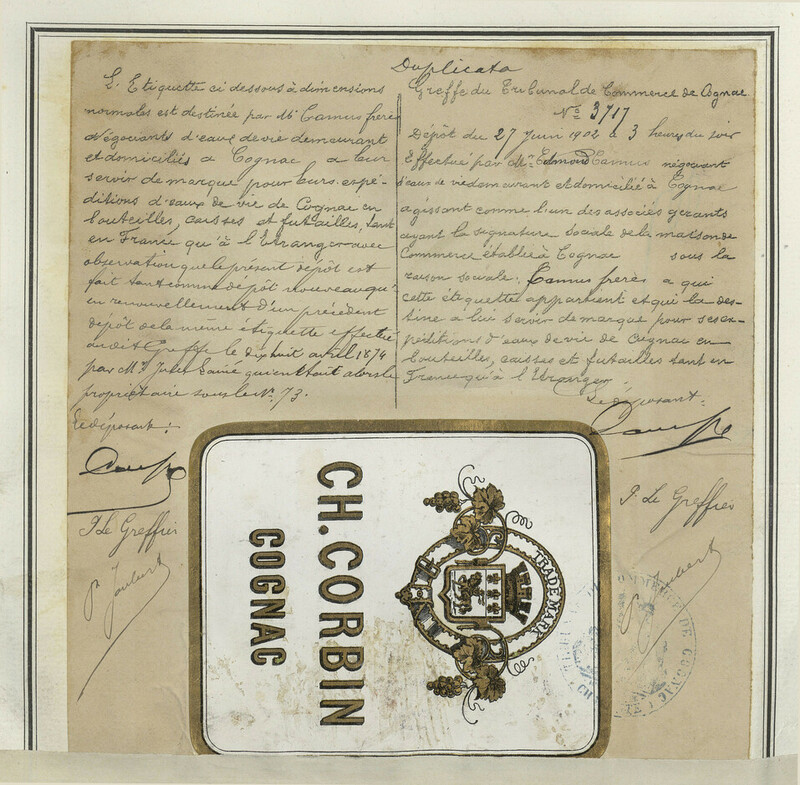 Duplicata
L'Etiquette ci dessous à dimensions
normales est destinée par Mrs Camus frères
négociants d'eaux de vie demeurant
et domiciliés à Cognac à leur
servir de marque pour leurs expé-
ditions d'eaux de vie de Cognac en
bouteilles, caisses et futailles, tant
en France qu'à l'Etranger avec
observation que le présent dépôt est
fait tant comme dépôt nouveau qu'
en renouvellement d'un précédent
dépôt de la même étiquette effectué
au dit Greffe le dix huit avril 1874
par Mr Jules qui en était alors le
propriétaire sous le No. 73.
Le déposant:
P. Le Greffier
P. Joubert
Greffe du Tribunal de Commerce de Cognac
No 3717
Dépôt du 27 Juin 1902 à 3 heures du soir
Effectué par Mr. Edmond Camus négociant
d'eaux de vie demeurant et domicilié à Cognac
agissant comme l'un des associés gérants
ayant la signature sociale de la maison de
Commerce établie à Cognac sous la
raison sociale: Camus frères à qui
cette étiquette appartient et qui la des-
tine à lui servir de marque pour ses ex-
péditions d'eaux de vie de Cognac en
bouteilles, caisses et futailles tant en
France qu'à l'Etranger.
Le déposant:
P. Le Greffier
P. Joubert
CH. CORBIN
COGNAC
TRADE MARK
COMMERCE DE COGNAC